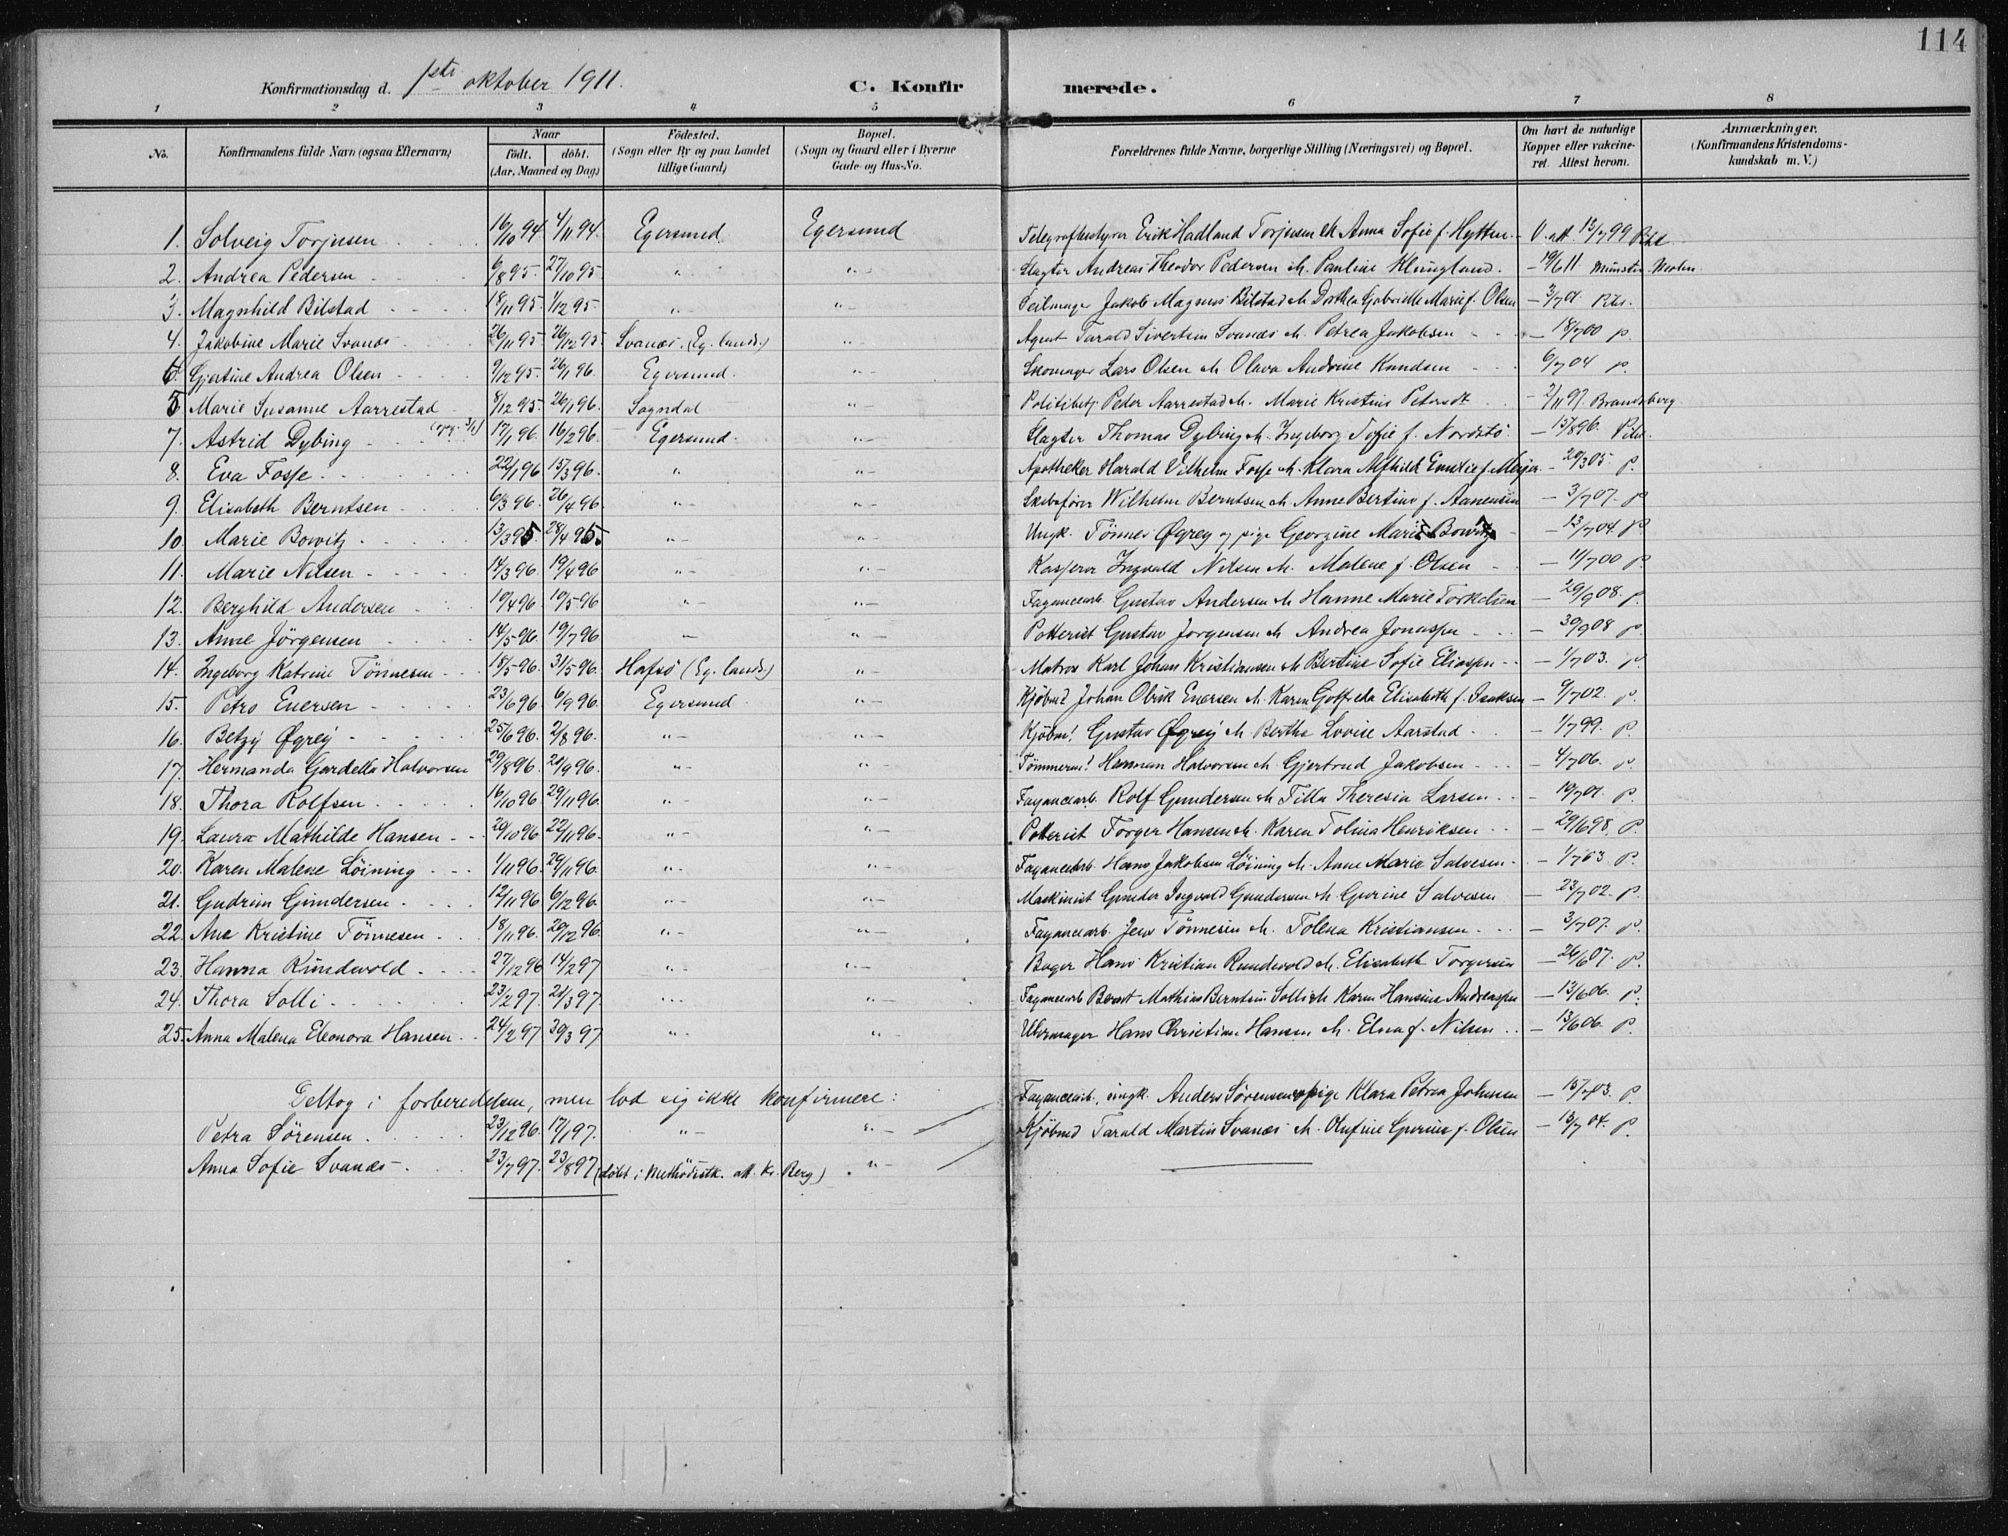 114
Konfirmationsdag d. 1ste oktober 1911. C. Konfirmerede.
1 2 3 4 5 6 7 8
No. Konfirmandens fulde Navn (ogsaa Efternavn) Naar født. døbt. (Aar, Maaned og Dag) Fødested. (Sogn eller By og paa Landet tillige Gaard) Bopæl. (Sogn og Gaard eller i Byerne Gade- og Hus-No. Forældrenes fulde Navne, borgerlige Stilling (Næringsvei) og Bopæl. Om havt de naturlige Kopper eller vakcineret. Attest herom. Anmærkninger. (Konfirmandens Kristendomskundskab m. V.)
1. Solveig Torjusen 16/10 94 4/11 94. Egersund Egersund Telegrafbestyrer Erik Hadland Torjusen & Anna Sofie f. Hytten V. att. 13/7 99
2. Andrea Pedersen 6/8 95. 27/10 95. "- "- Slagter Andreas Theodor Pedersen & Pauline Klungland. - 19/6 11
3. Magnhild Bilstad 18/11 95 1/12 95. "- "- Jakob Magnus Bilstad & Dorthea Gabrielle Marie f. Olsen - 3/7 01.
4. Jakobine Marie Svanæs 26/11 95 26/12 95. Svanæs. (Eg. lands.) "- Agent Tarald Sivertsen Svanæs & Petrea Jakobsen - 18/7 00 p.
6. Gjertine Andrea Olsen 9/12 95. 26/1 96. Egersund. "- Skomager Lars Olsen & Olava Andrine Knudsen 6/7 04 p.
5. Marie Susanne Aarrestad 8/12 95. 26/1 96. Sogndal "- Politibetj. Peder Aarrestad & Marie Kristine - 2/11 97. Brandsberg
7. Astrid Dybing 17/1 96. 16/2 96. Egersund. "- Slagter Thomas Dybing & Ingeborg Sofie f. Nordstø. - 15/8 96.
8. Eva Fosse 22/1 96 15/3 96. "- "- Apotheker Harald Vilhelm Fosse & Klara Alfhild Emilie f. Meyer - 20/3 05. p.
9. Elisabeth Berntsen 6/3 96. 26/4 96 "- "- Skibsfører Wilhelm Berntsen & Anne Bertine f. Aanensen - 3/7 07. p
10. Marie Bowitz 13/3 95 28/4 95 "- "- Ungk. Tønnes Øgrey og pige Georgine Marie Bowitz - 13/7 04. p.
11. Marie Nilsen 14/3 96. 19/4 96 "- "- Kasserer Ingvald Nilsen & Malene f. Olsen - 11/7 00 p.
12. Berghild Andersen 10/4 96. 10/5 96 "- "- Fayancearb. Gustav Andersen & Hanne Marie Torkelsen - 29/9 08. p.
13. Anne Jörgensen 14/5 96 19/7 96 "- "- Potterist Gustav Jørgensen & Andrea Jonassen - 30/9 08 p.
14. Ingeborg Katrine Tönnesen 18/5 96. 31/5 96. Hafsö (Eg. lands.) "- Matros Karl Johan Kristiansen & Bertine Sofie Eliassen - 1/7 03. p.
15. Petra Enersen 23/6 96 6/9 96 Egersund "- Kjøbmd Johan Olrik Enersen & Karen Elisabeth f. Isaksen - 9/7 02. p.
16. Betzy Øgrey 25/6 96. 2/8 96. "- "- Kjøbm! Gustav Øgrey & Bertha Lovise Aarstad - 1/7 99. p.
17. Hermanda Gardella Halvorsen 29/8 96. 20/9 96. "- "- Tømmerm! Herman Halvorsen & Gjertrud Jakobsen - 4/7 06. p.
18. Thora Rolfsen 16/10 96. 29/11 96. "- "- Fayancearb. Rolf Gundersen & Tilla Theresia Larsen - 10/7 01. p.
19. Laura Mathilde Hansen 20/10 96 22/11 96. "- "- Potterist Torger Hansen & Karen Tolina Henriksen - 29/6 98. p.
20. Karen Malene Löining 1/11 96. 29/11 96. "- "- Fayancearb. Hans Jakobsen Löining & Anne Marie Salvesen - 1/7 03. p.
21. Gudrun Gundersen 12/11 96 6/12 96. "- "- Maskinist Gunder Ingvald Gundersen & Gurine Salvesen - 23/7 02. p.
22. Ane Kristine Tönnesen 18/11 96. 20/12 96. "- "- Fayancearb. Jens Tönnesen & Tolena Kristiansen - 3/7 07. p.
23. Hanna Rundevold 27/12 96 14/2 97 "- "- Bager Hans Kristian Rundevold & Elisabeth Torgersen - 26/6 07. p.
24. Thora Solli 23/2 97. 21/3 97. "- "- Fayancearb Berent Mathias Berntsen Solli & Karen Hansine Andreassen - 13/6 06. p.
25. Anna Malena Eleonora Hansen 24/2 97. 30/3 97 "- "- Uhrmager Hans Christian Hansen & Elna f. Nilsen - 13/6 06. p.
Deltog i forberedelsen, men lod sig ikke konfirmere:
Petra Sörensen 23/12 96. 17/1 97. "- "- Fayancearb., ungk. Anders Sörensen og pige Klara Petrea Johnsen - 15/7 03. p.
Anna Sofie Svanæs 23/7 97. 23/8 97 (døbt i Methodistk. att. Kr. Berg) "- Kjøbmd Tarald Martin Svanæs & Olufine Gurine f. Olsen - 13/7 04. p.